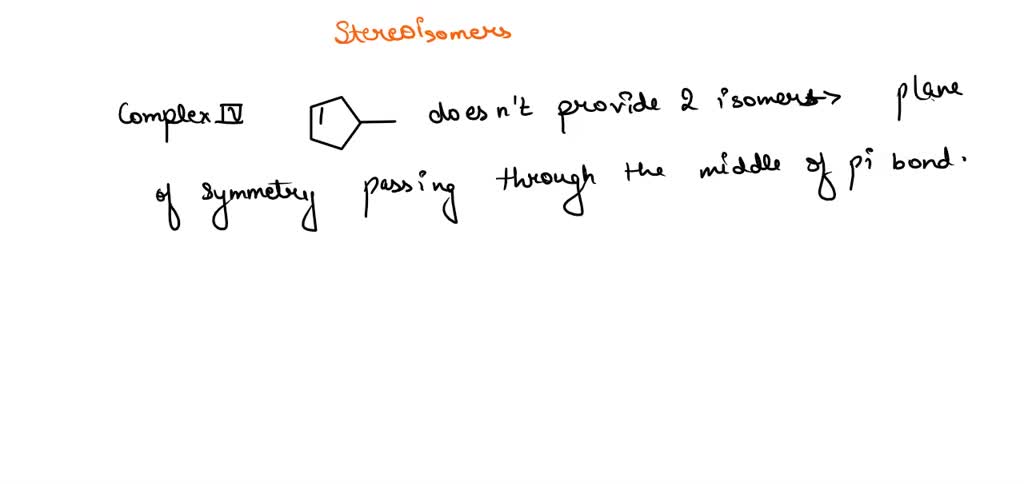 Stereoisomers
Complex IV doesn't provide 2 isomers → plane
of symmetry passing through the middle of pi bond.